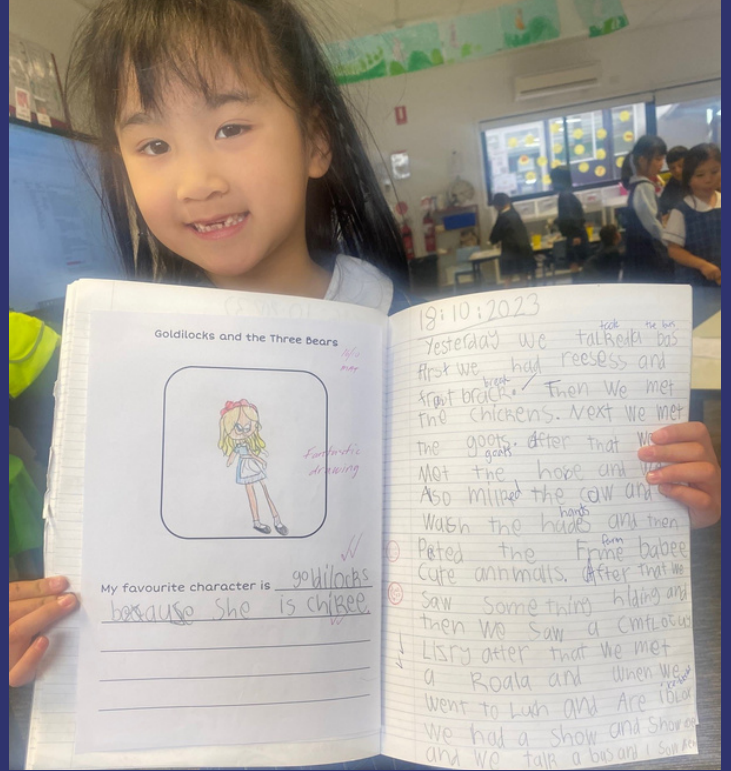 Goldilocks and the Three Bears
Fantastic
drawing
My favourite character is goldilocks
because she is chikee.
18:10:2023
took the bus
Yesterday we talked a bas
first we had reesess and
break
frowt brack. Then we met
The chickens. Next we met
the goots. After that We
goats
Met the hope and
Also milked the cow and
hands
Waish the hades and then
Farm
Peted the Frme babee
Cute annmalls. After that we
Saw Something hiding and
then We Saw a
after that we met
a Koala and when we
went to Luh and Are
We had a show and Show
and we talk a bus and I Saw